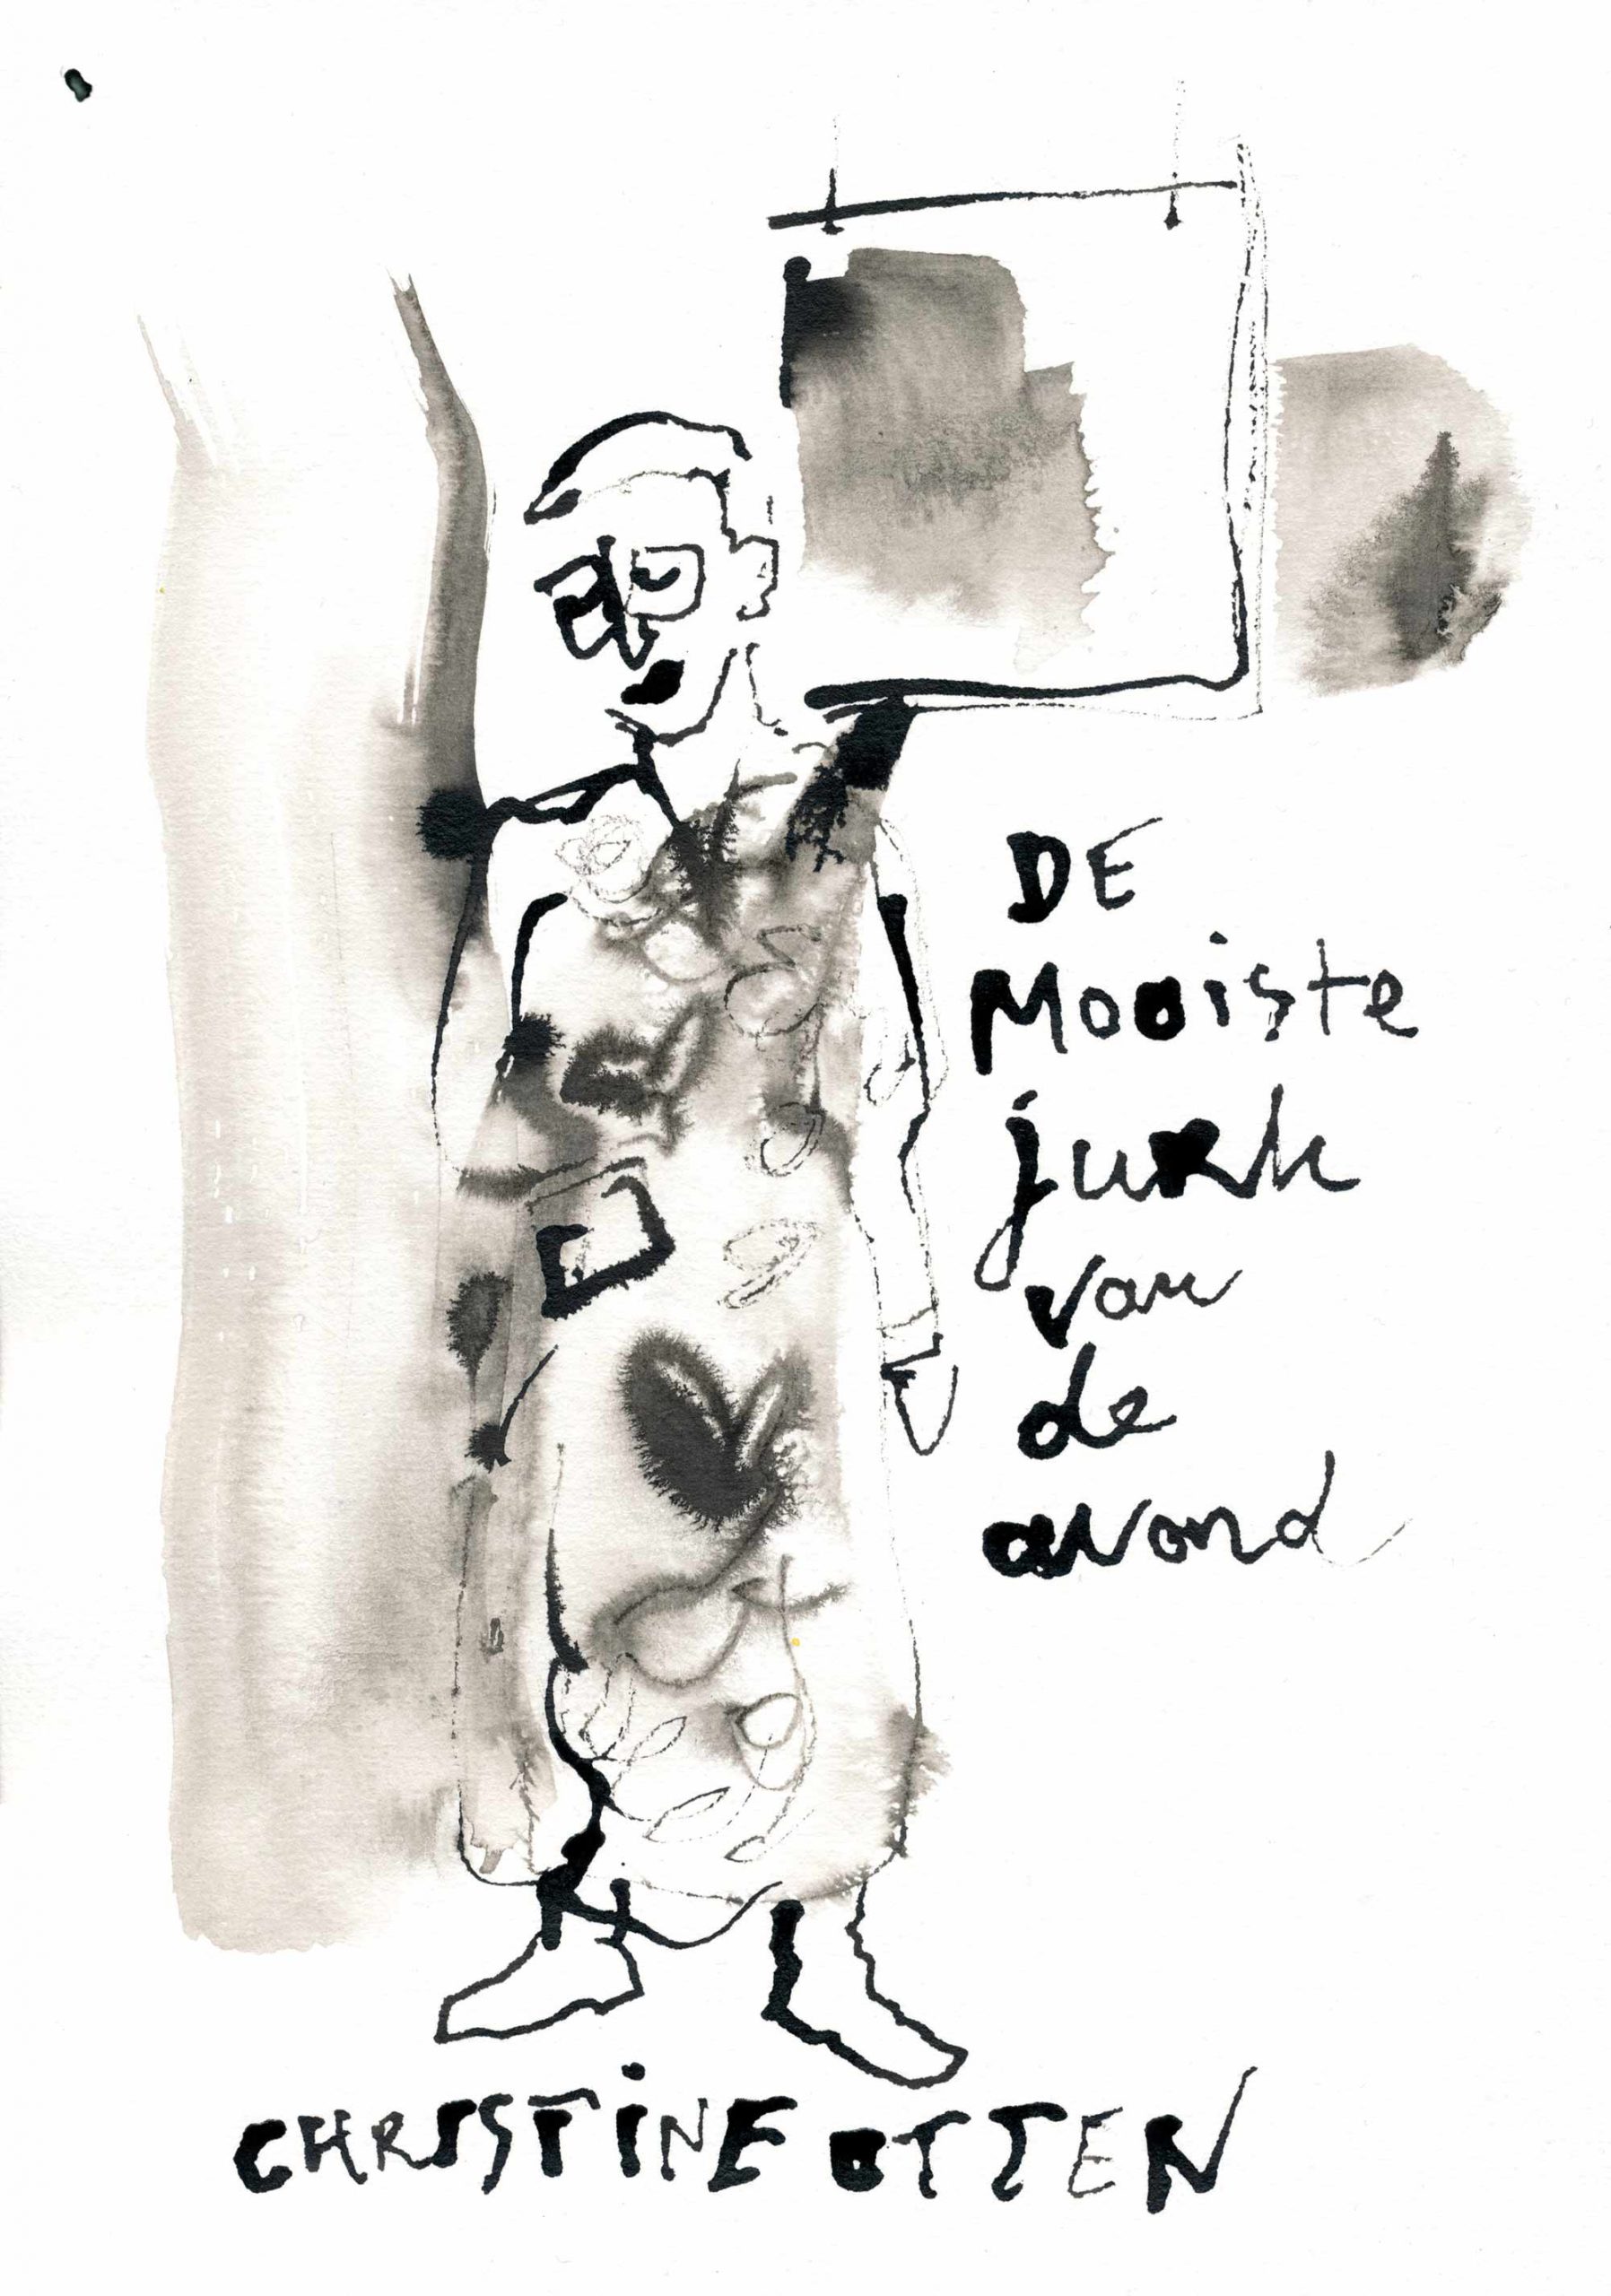 DE
Mooiste
jurk
van
de
avond
CHRISTINE OTTEN